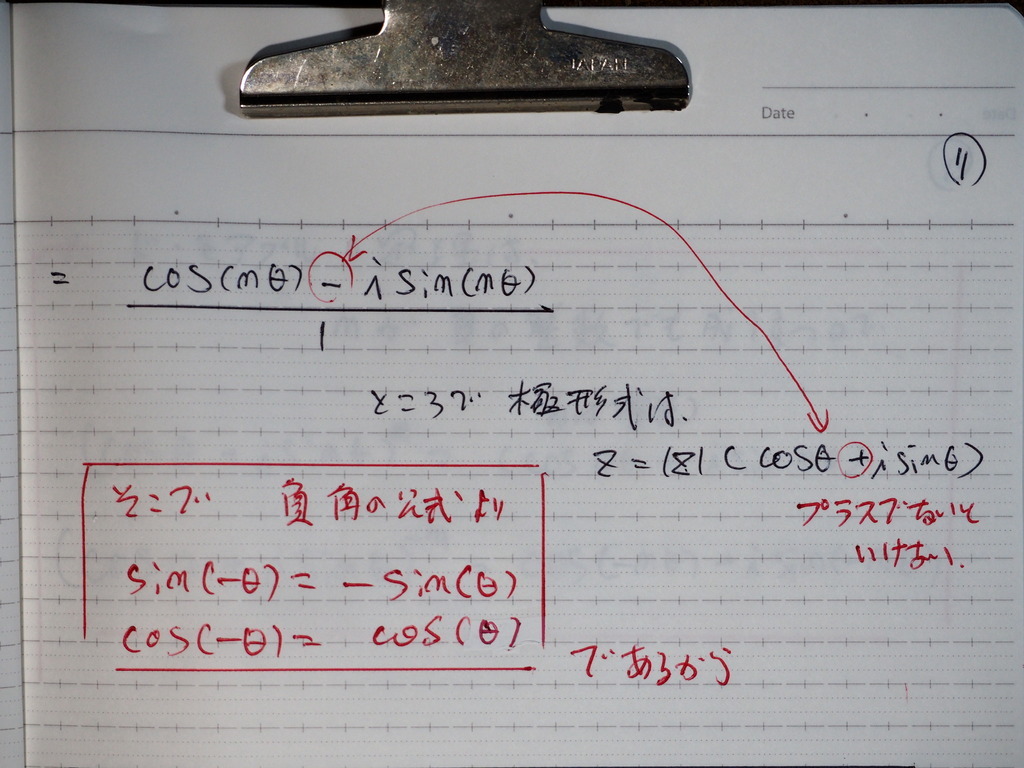 JAPAN
Date
⑪
= cos(nθ) - i sin(nθ)
1
ところで 極形式は、
z = |z| ( cosθ + i sinθ)
プラスでないと
いけない.
そこで 負角の公式より
sin(-θ) = - sin(θ)
cos(-θ) = cos(θ)
であるから